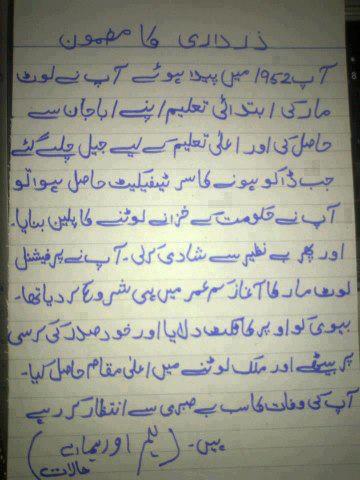 ذرداری کا مضمون
آپ 1952 میں پیدا ہوئے آپ نے لوٹ
مار کی ابتدائی تعلیم اپنے اباجان سے
حاصل کی اور اعلیٰ تعلیم کے لیے جیل چلے گئے
جب ڈاکو ہونے کا سرٹیفیکیٹ حاصل ہوا تو
آپ نے حکومت کے خزانے لوٹنے کا پلین بنایا۔
اور پھر بے نظیر سے شادی کرلی۔ آپ نے پرفیشنل
لوٹ مار کا آغاز کم عمر میں ہی شروع کر دیا تھا۔
بیوی کو اوپر کا ٹکٹ دلایا اور خود صدر کی کرسی
پر بیٹھے اور ملک لوٹنے میں اعلیٰ مقام حاصل کیا۔
آپ کی وفات کا سب بے صبری سے انتظار کر رہے
ہیں۔ (یلم اور ہمارے
حالات)